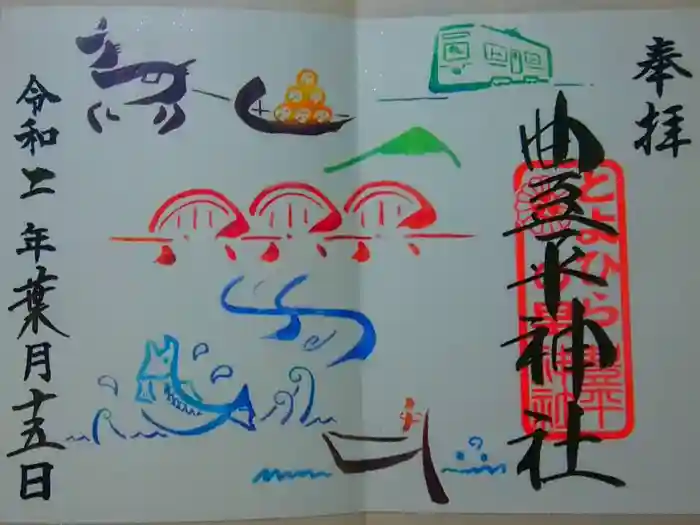 奉拝
豊平神社
とよひら
令和二年葉月十五日